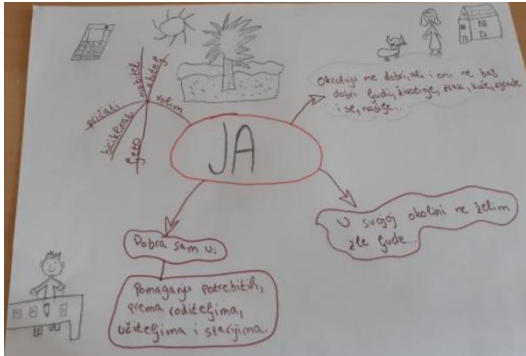 JA
volim
mobitel
obitelj
pričati
ljeto
Okružuju me dobri, ali i oni ne baš
dobri ljudi, životinje, zrak, kuće, zgrade
i sl.
U svojoj okolini ne želim
zle ljude...
Dobra sam u:
Pomaganju potrebitih,
prema roditeljima,
učiteljima i starijima.